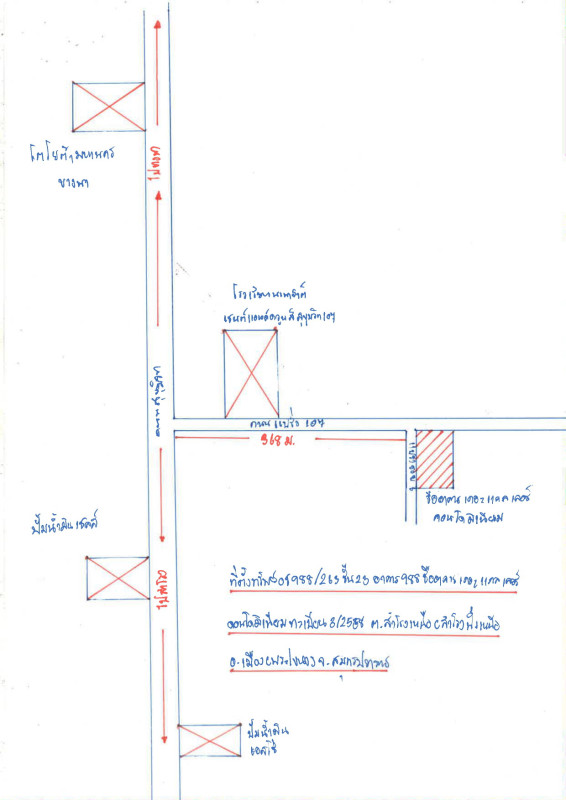 โตโยต้ามหานคร
บางนา
ไปบางนา
โรงเรียนนานาชาติ
เซนต์แอนด์ดรูนส์สุขุมวิท 107
ถนนสุขุมวิท
ถนน แบริ่ง 107
368 ม.
ชื่ออาคาร เดอะ แกลเลอรี่
คอนโดมิเนียม
ปั๊มน้ำมันเชลล์
ไปสำโรง
ที่ตั้งทรัพย์ 988/265 ชั้น 23 อาคาร 988 ชื่ออาคาร เดอะ แกลเลอรี่
คอนโดมิเนียม ทะเบียน 8/2558 ต.สำโรงเหนือ (สำโรงฝั่งเหนือ
อ.เมือง(พระโขนง) จ.สมุทรปราการ
ปั๊มน้ำมัน
เอสโซ่